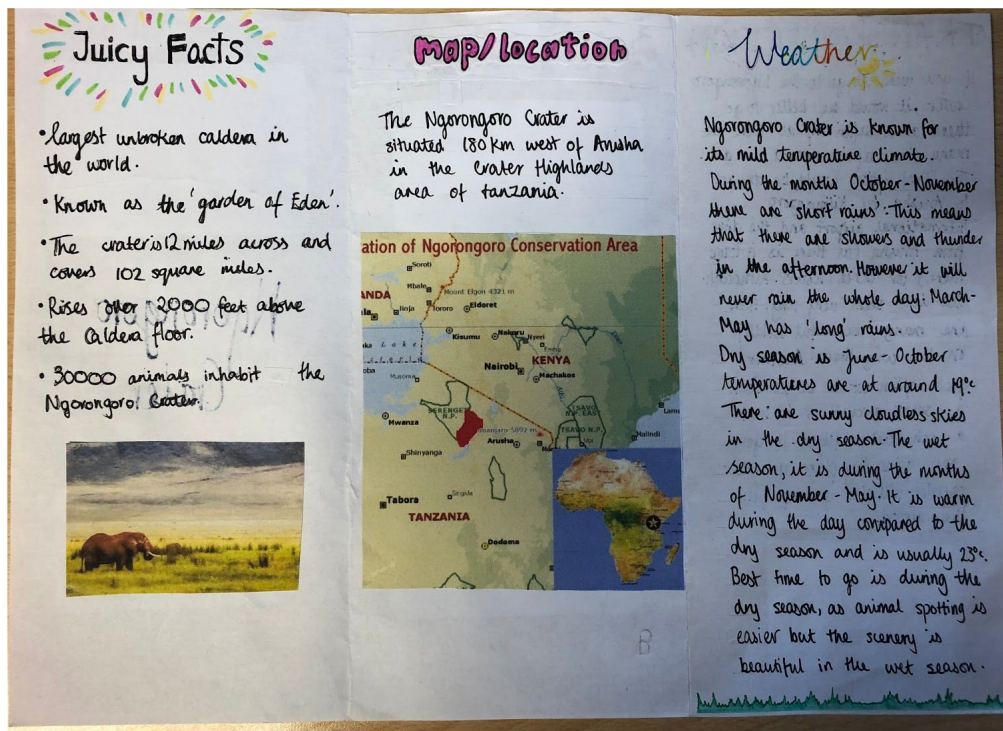 Juicy Facts
• largest unbroken caldera in
the world.
• Known as the 'garden of Eden'.
• The crater is 12 miles across and
covers 102 square miles.
• Rises over 2000 feet above
the Caldera floor.
• 30000 animals inhabit the
Ngorongoro Crater.
map/location
The Ngorongoro Crater is
situated 180km west of Arusha
in the Crater Highlands
area of tanzania.
ation of Ngorongoro Conservation Area
Soroti
Mbale
Mount Elgon 4321 m
ANDA
Jinja
Tororo
Eldoret
Kisumu
Nakuru
Nyeri
Lake
KENYA
Nairobi
Machakos
Musoma
SERENGETI
N.P.
Mwanza
TSAVO
N.P. EAST
TSAVO N.P.
Lamu
Malindi
5892 m
Arusha
Shinyanga
Tabora
Singida
TANZANIA
Dodoma
B
Weather
Ngorongoro Crater is known for
its mild temperature climate.
During the months October - November
there are 'short rains'. This means
that there are showers and thunder
in the afternoon. However it will
never rain the whole day. March-
May has 'long' rains.
Dry season is June - October
temperatures are at around 19°c
There are sunny cloudless skies
in the dry season. The wet
season, it is during the months
of November - May. It is warm
during the day compared to the
dry season and is usually 23°c.
Best time to go is during the
dry season, as animal spotting is
easier but the scenery is
beautiful in the wet season.